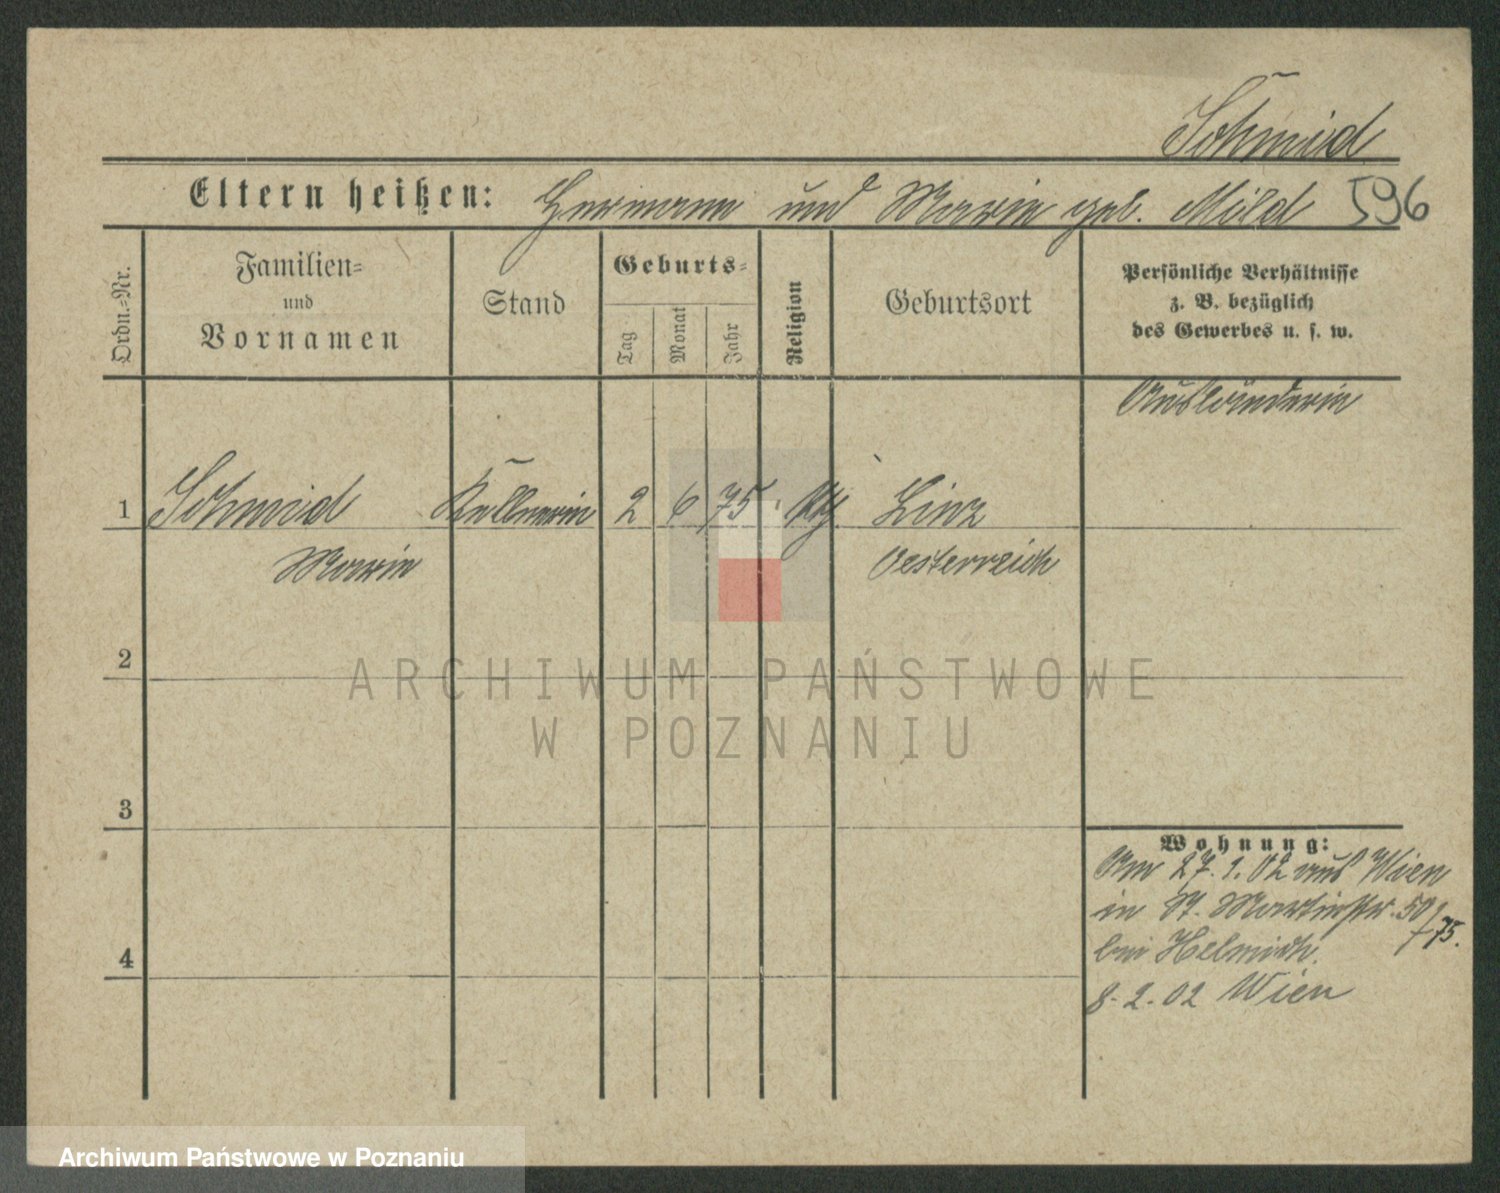 Schmid
Eltern heißen: Hermann und Marie geb. Mild 596
Ordn.-Nr.
Familien-
und
Vornamen
Stand
Geburts-
Tag
Monat
Jahr
Religion
Geburtsort
Persönliche Verhältnisse
z. B. bezüglich
des Gewerbes u. s. w.
Ausländerin
1 Schmid Kellnerin 2 6 75 Linz
Marie Oesterreich
2
ARCHIWUM PAŃSTWOWE
W POZNANIU
3
Wohnung:
Am 27.1.02 aus Wien
in St. Martinstr. 50/75.
bei Helmich.
4
8.2.02 Wien
Archiwum Państwowe w Poznaniu